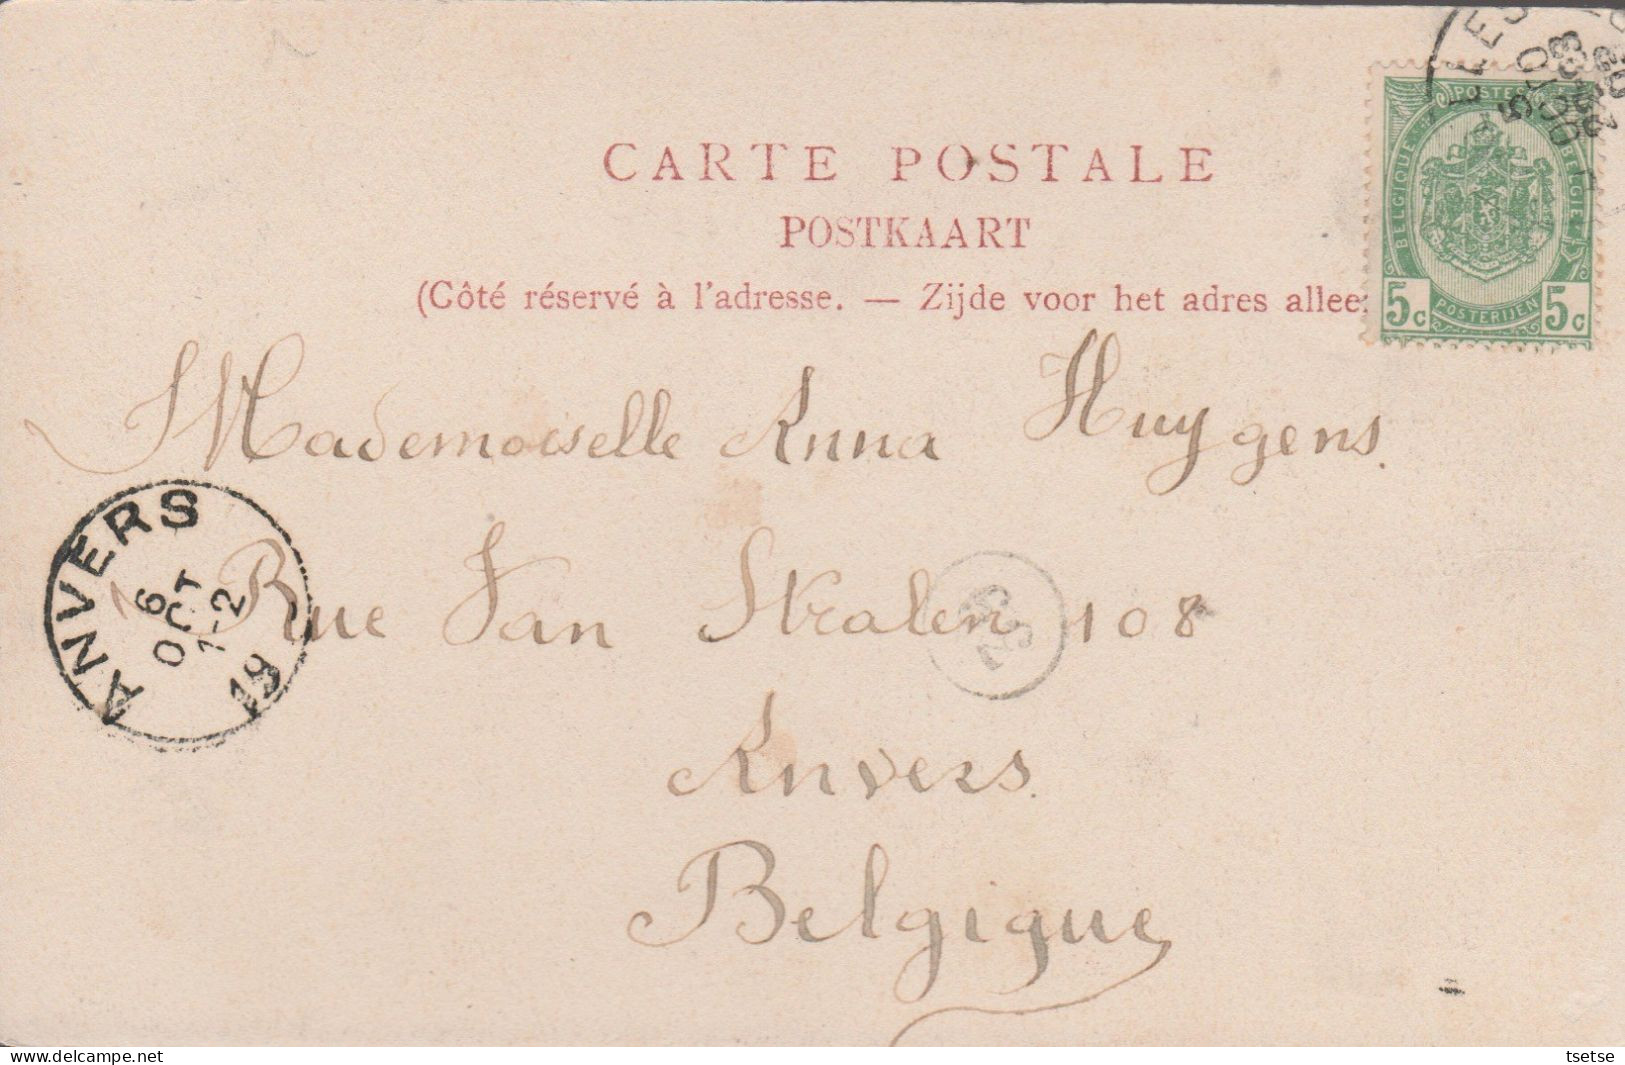 CARTE POSTALE
POSTKAART
(Côté réservé à l'adresse. — Zijde voor het adres allee
POSTES
BELGIQUE
BELGIË
5c POSTERIJEN 5c
Mademoiselle Anna Huygens.
Rue Van Stralen 108
Anvers.
Belgique
ANVERS
6
OCT
1-2
19
OCT
5
tsetse
delcampe.net